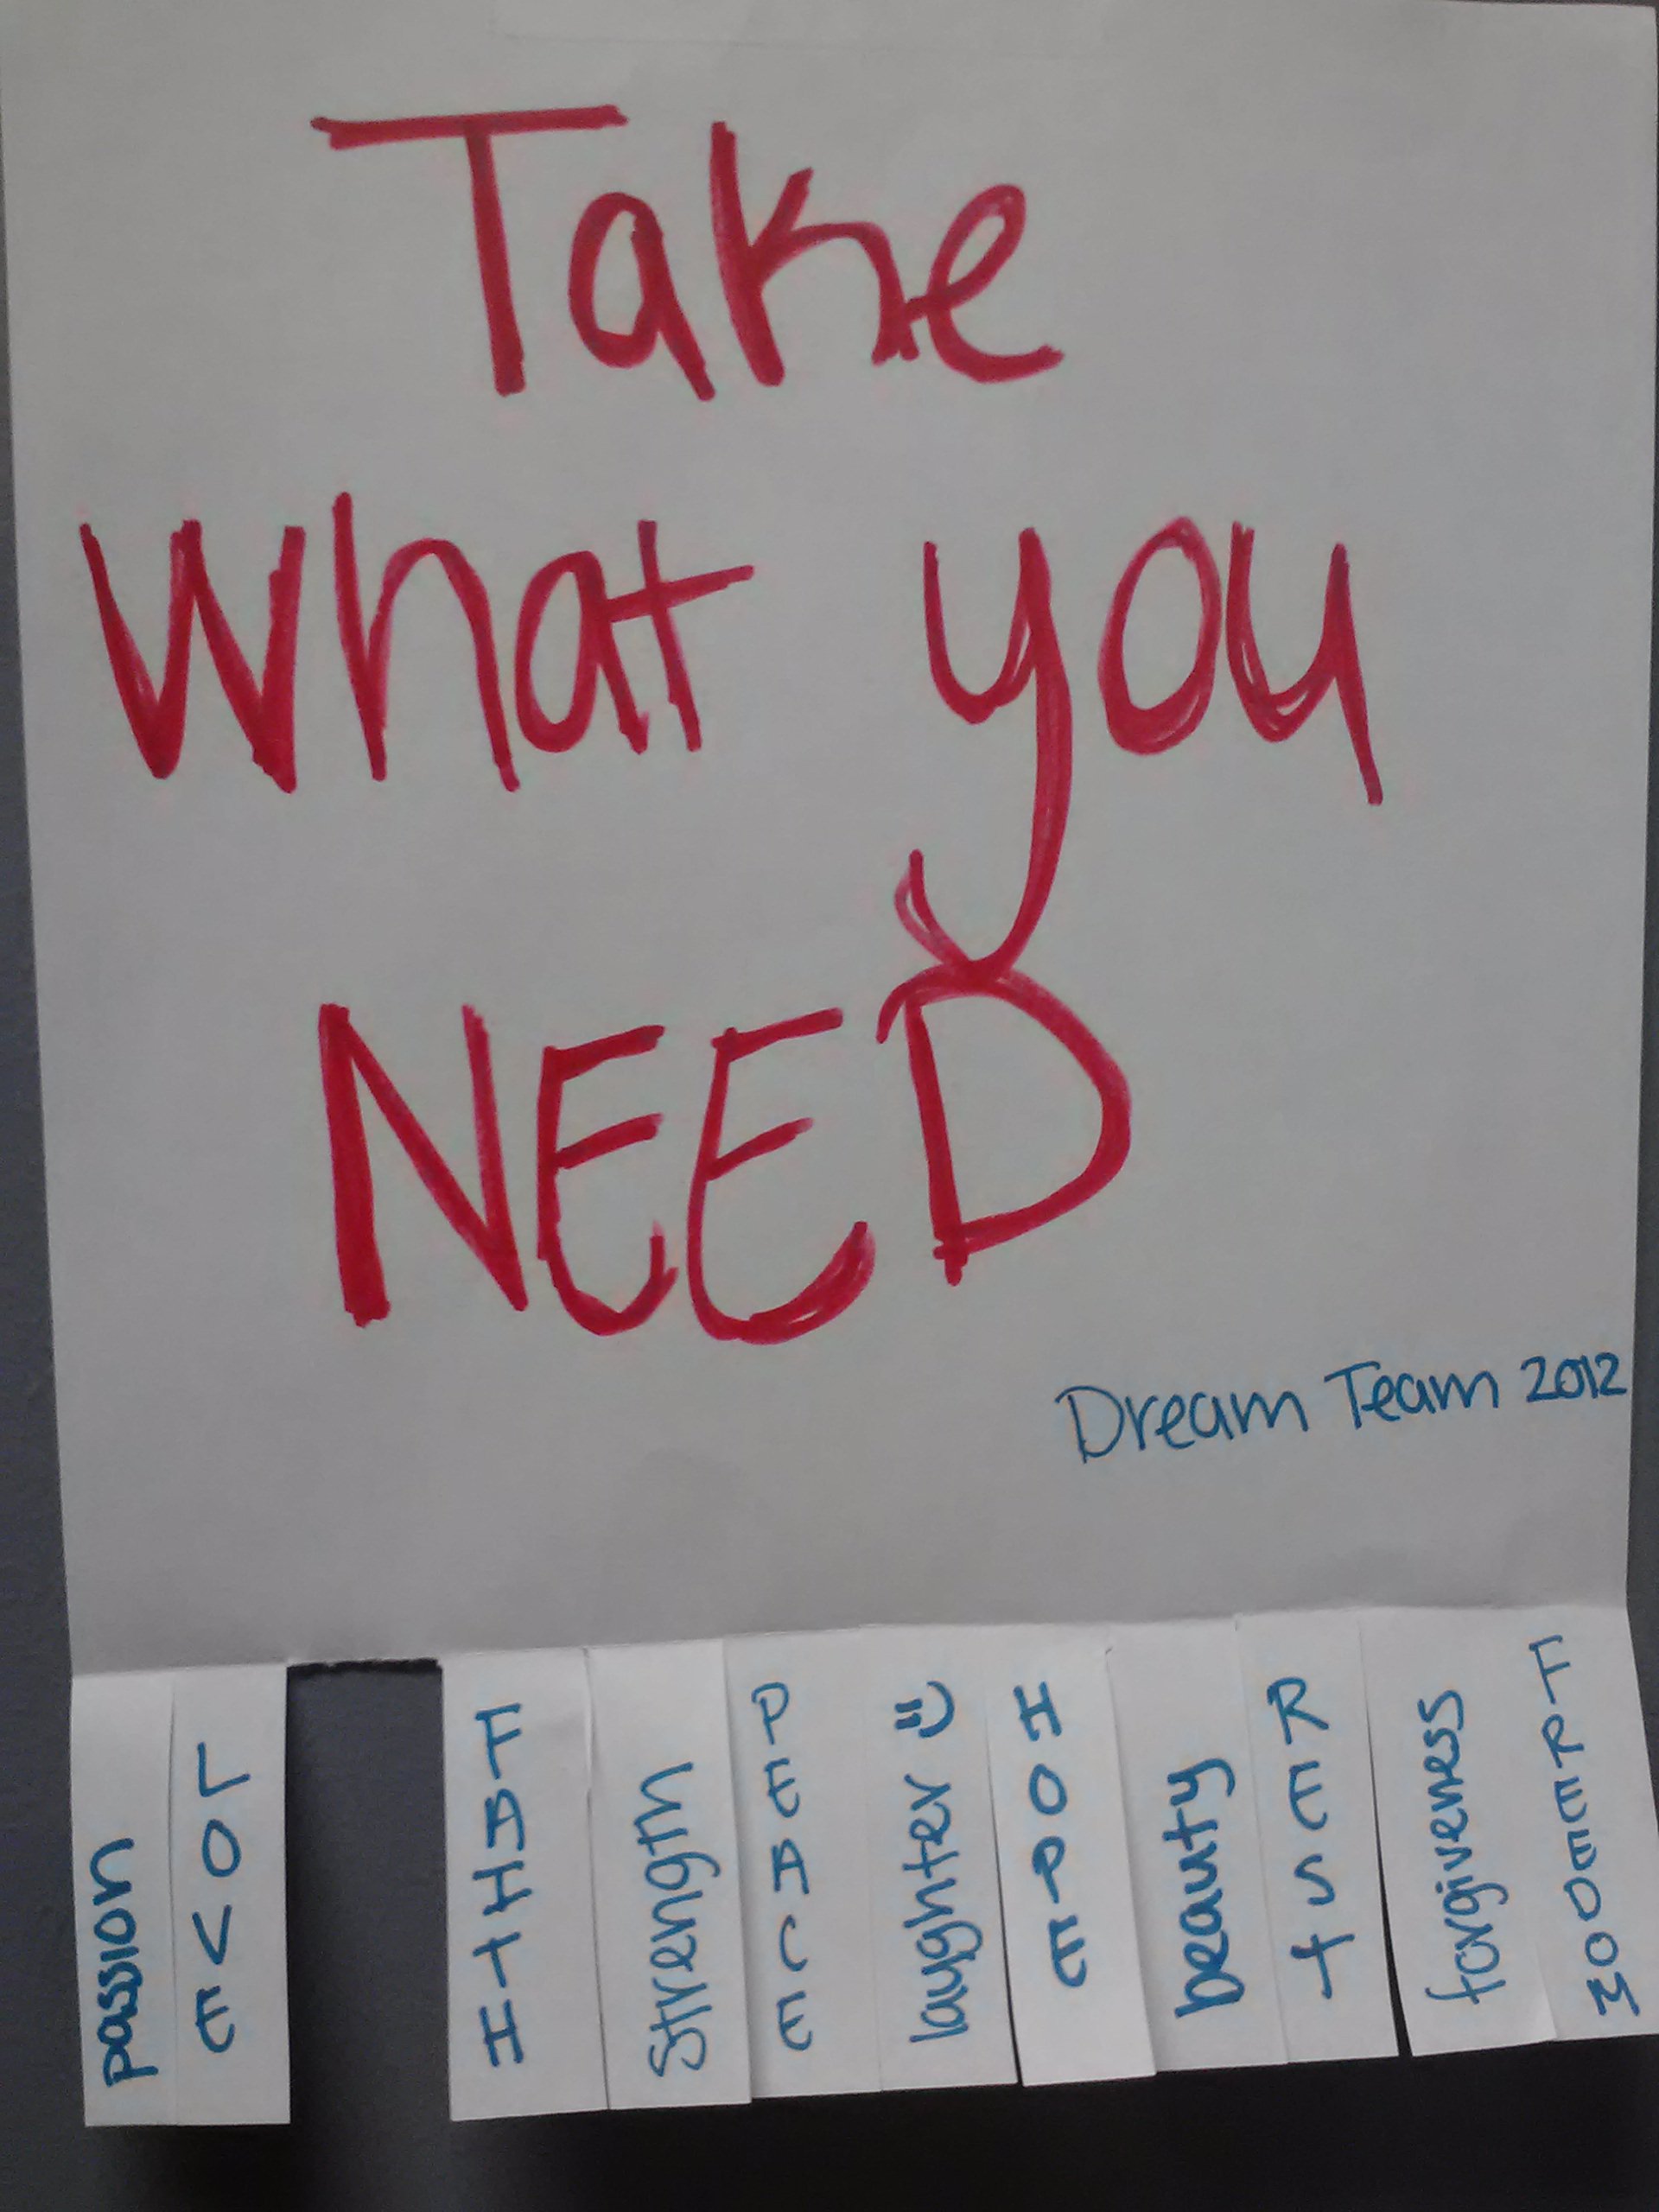 Take
What you
NEED
Dream Team 2012
passion
LOVE
FAITH
Strength
PEACE
laughter
HOPE
beauty
REST
forgiveness
FREEDOM